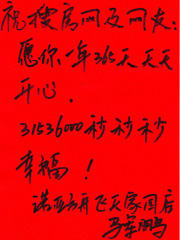 祝搜房网及网友：
愿你一年365天天天
开心．
31536000秒秒秒
幸福！
诺亚方舟飞天家园店
马军鹏